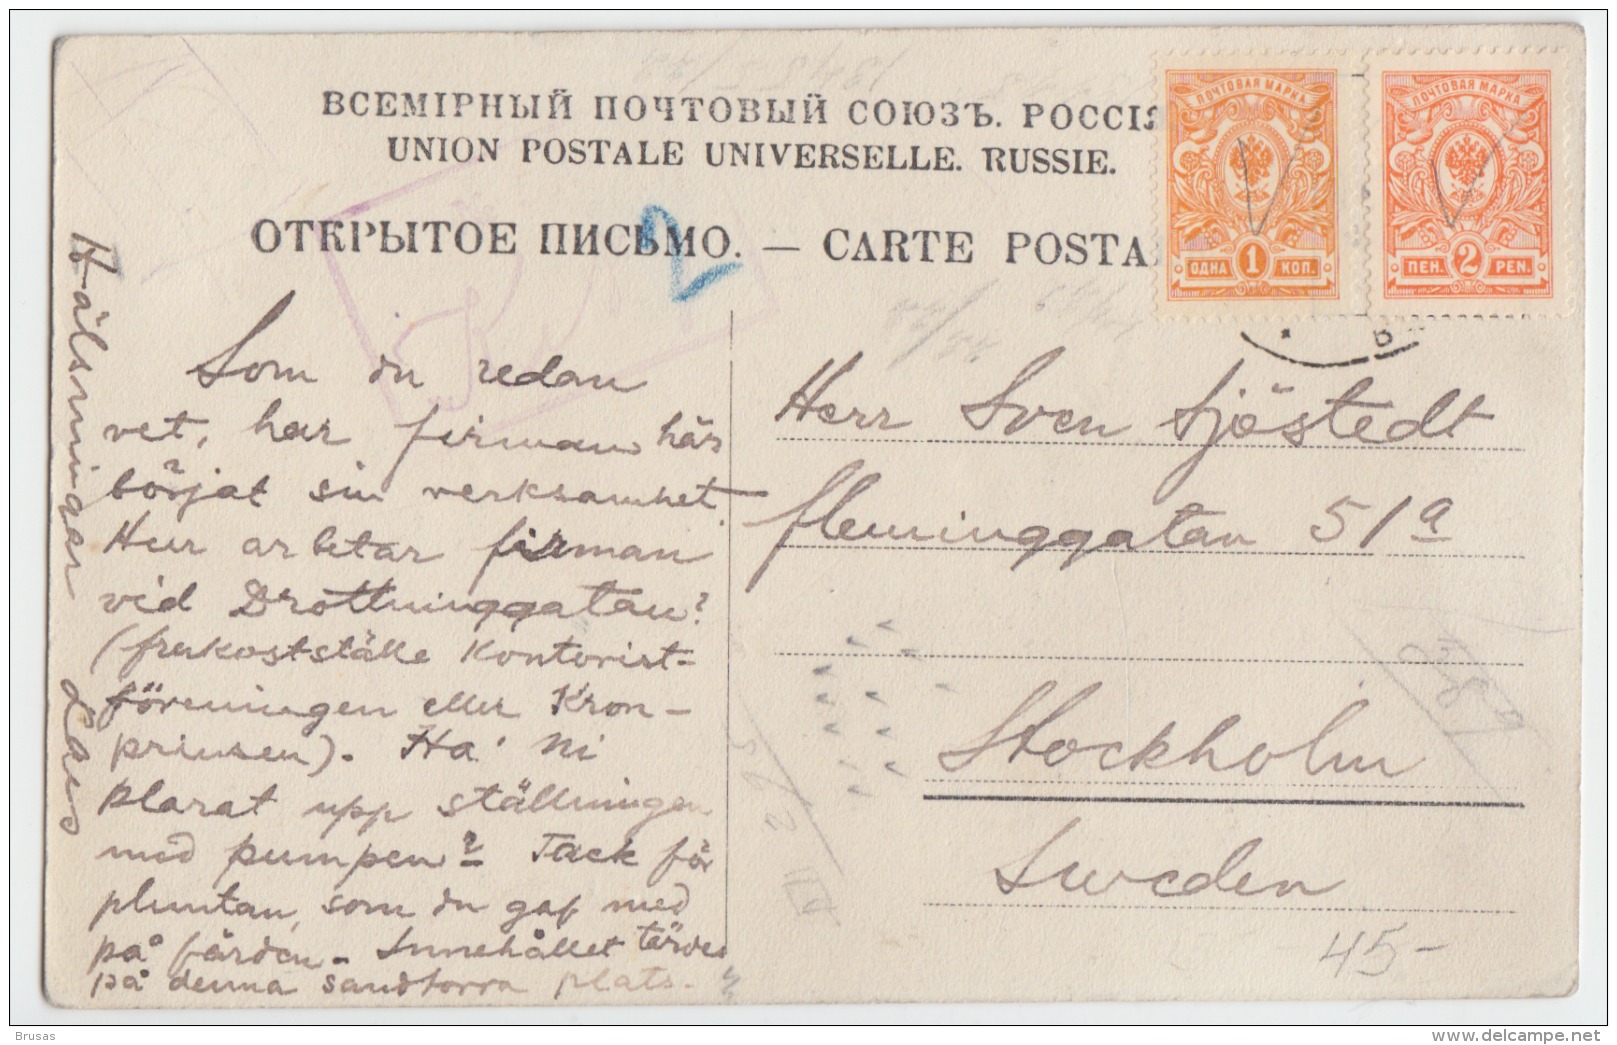 ВСЕМІРНЫЙ ПОЧТОВЫЙ СОЮЗЪ. РОССІЯ
UNION POSTALE UNIVERSELLE. RUSSIE.
ОТКРЫТОЕ ПИСЬМО. — CARTE POSTA
ПОЧТОВАЯ МАРКА
ОДНА 1 КОП.
ПОЧТОВАЯ МАРКА
ПЕН. 2 PEN.
2
Som du redan
vet, har firman här
börjat sin verksamhet.
Hur arbetar firman
vid Drottninggatan?
(frukostställe Kontorist-
föreningen eller Kron-
prinsen). Ha ni
klarat upp ställningen
med pumpen? Tack för
pluntan, som du gaf med
på färden. Innehållet tärdes
på denna sandtorra plats.
Hälsningar
Herr Sven Sjöstedt
Fleminggatan 51a
Stockholm
Sweden
45-
Brusas
www.delcampe.net